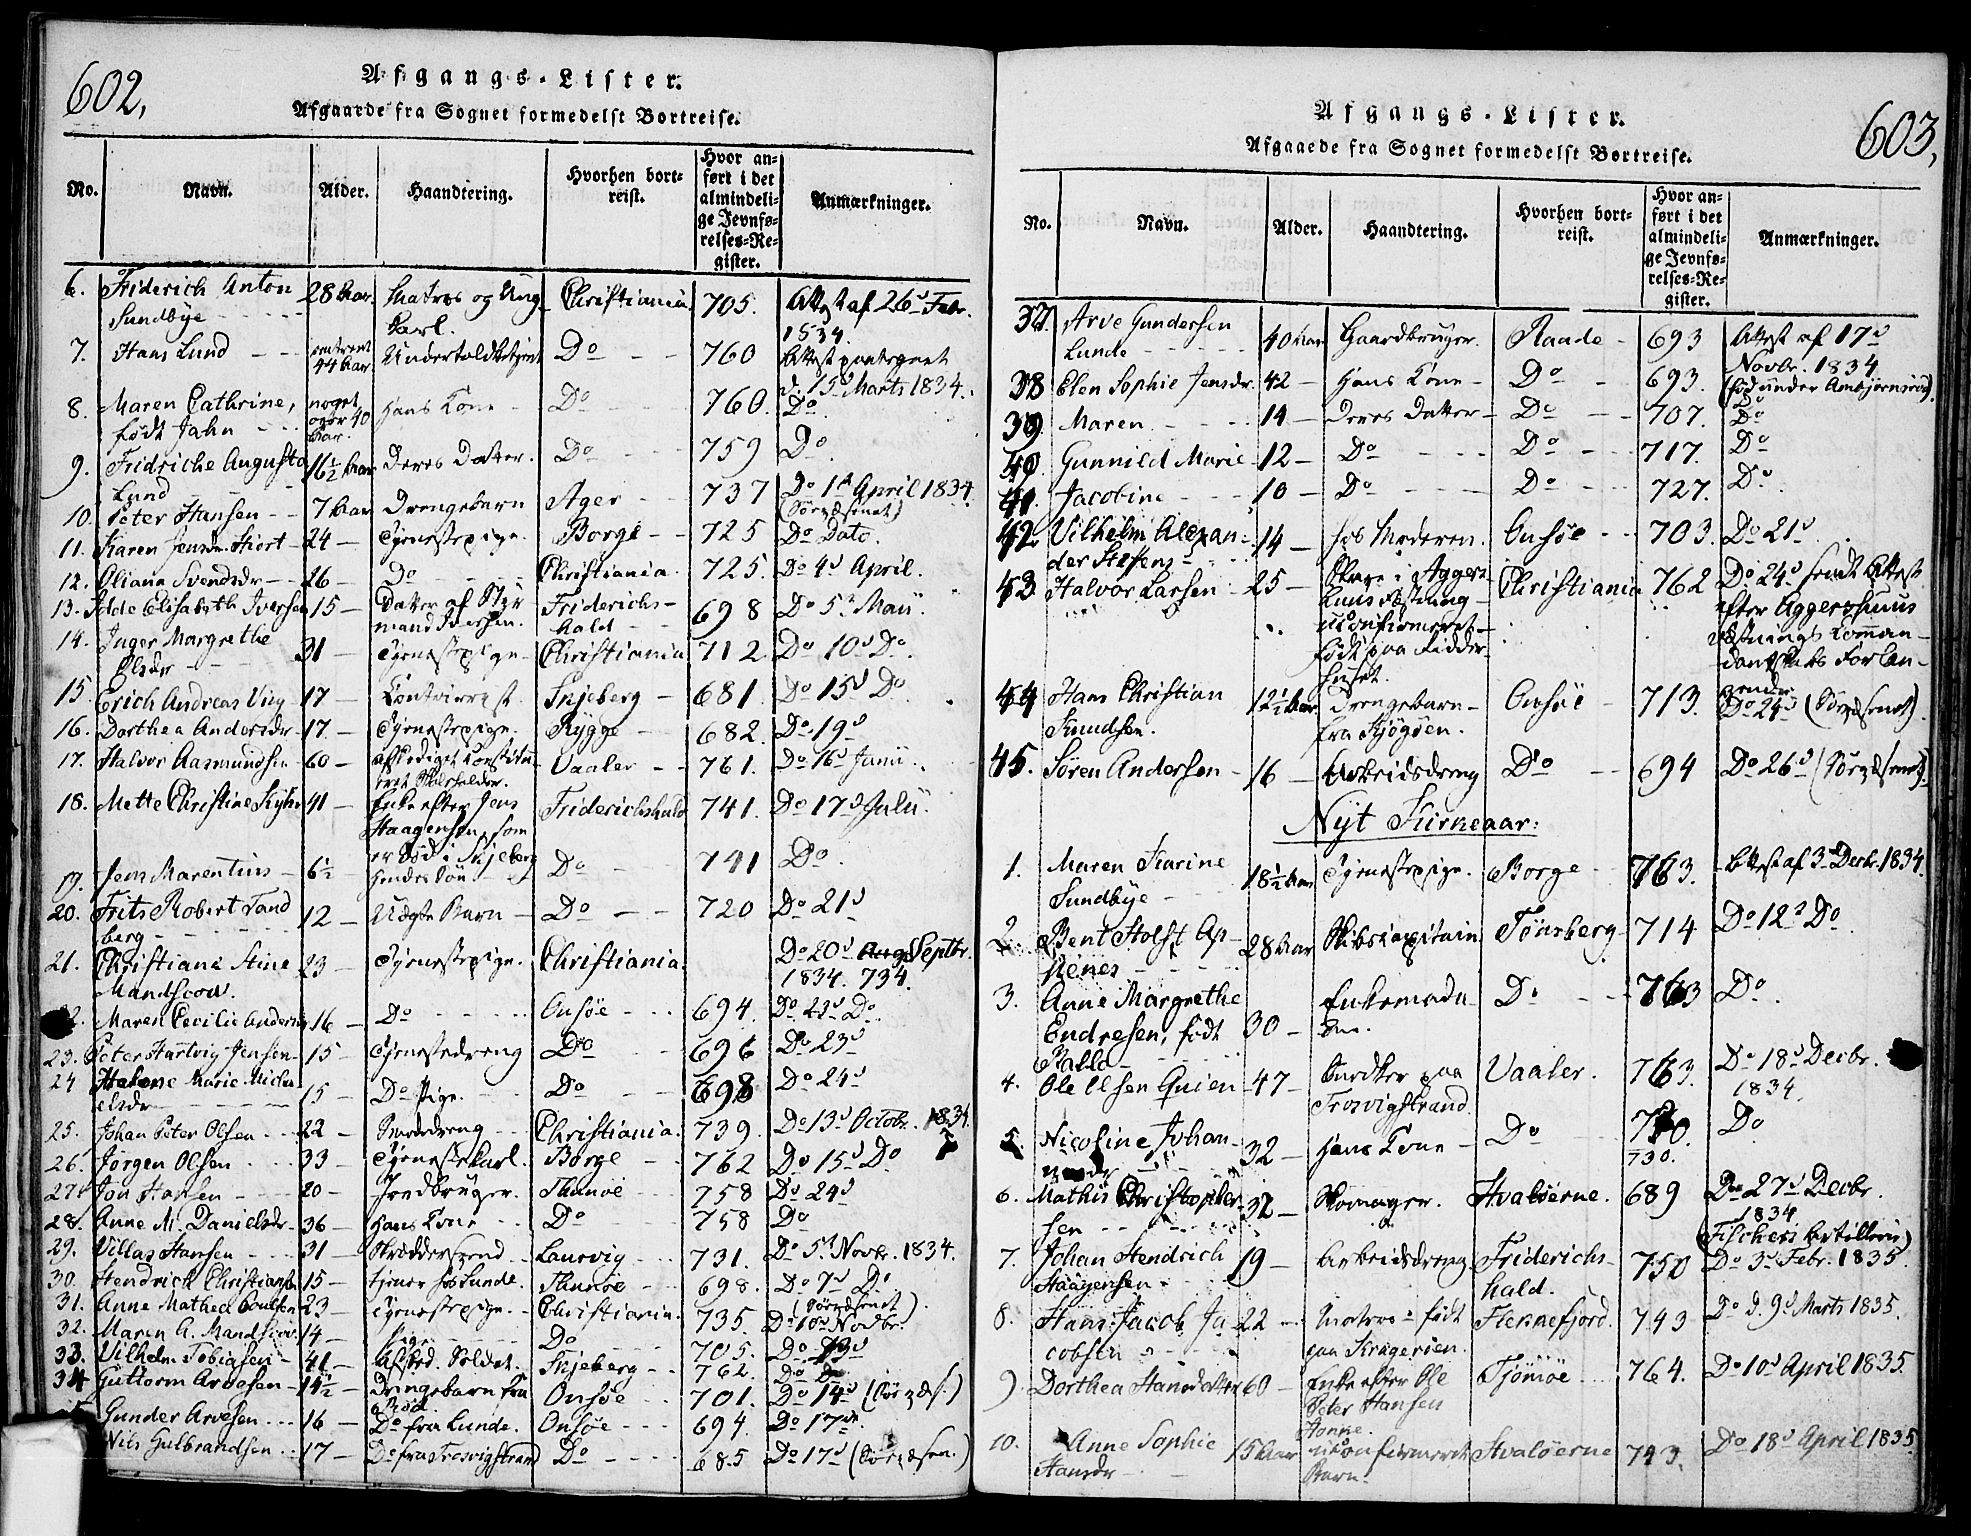 602,
Afgangs-Lister.
Afgaarde fra Sognet formedelst Bortreise.
No. Navn. Alder. Haandtering. Hvorhen bortreist. Hvor anført i det almindelige Jevnførelses-Register. Anmærkninger.
6. Friderich Anton Sundbye 28 Aar Matros og Ung Karl. Christiania 705. Attest af 26d Febr. 1834.
7. Hans Lund omtrent 44 Aar Undertoldbetjent Do 760 Attest paategnet d. 15d Marts 1834.
8. Maren Cathrine, født Jahn noget over 40 Aar. Hans Kone Do 760. Do
9. Fridriche Augusta Lund 16½ Aar Deres Datter. Do 759 Do
10. Peter Hansen 7 Aar Drengebarn Ager 737 Do 1d April 1834
11. Karen Jensdr Hiort 24 Tjenestepige. Borge 725 Do Dato.
12. Oliana Svendsdr 26 Do Christiania. 725. Do 4d April.
13. Ilde Elisabeth Iversen 15 Datter af Styrmand Iversen. Friderichshald 698 Do 5d Maii
14. Inger Margrethe Olsdr 31 Tjenestepige Christiania 712. Do 10d Do
15. Erich Andreas Ving 17 Contoirist. Skjeberg 681. Do 15d Do
16. Dorthea Andersdr 17. Tjenestepige. Rygge 682. Do 19d
17. Halvor Aasmundsen 60 Vaaler 761. Do 16d Junii.
18. Mette Christine 41 Enke efter Jens Haagensen, som er død i Skjeberg Friderichshald 741. Do 17d Julii.
19. Jens Marentius 6½ Hendes Søn Do 741 Do
20. Frits Robert Tandberg 12 Uægte Barn Do 720 Do 21d
21. Christiane Stine Mandscow. 23 Tjenestepige. Christiania. Do 20d Septbr. 1834. 734.
22. Maren Cecilie Anders 16 Do Onsøe 694. Do 23d Do
23. Peter Hartvig Jensen 15 Tjenestedreng Do 696 Do 23d
24 Helene Marie Michelsdr 15 Do Pige. Do 698 Do 24d
25. Johan Peter Olsen 22 Christiania. 739. Do 13d Octobr. 1834.
26. Jørgen Olsen 33 Tjenestekarl. Borge 762 Do 15d Do
27. Jon Hansen 20 Jordbruger. Thunøe 758 Do 24d
28. Anne M. Danielsdr 36 Hans Kone Do 758 Do
29. Villas Hansen 31 Skræddersvend Laurvig 731. Do 5d Novbr. 1834.
30. Hendrich Christiansen 15 tjener hos Lunde. Thunøe 698. Do 7d Do
31. Anne Mathea Poulsen 23 Tjenestepige. Christiania. 735. Do 10d Novbr.
32. Maren A. Mandscow 14 Pige Do 705. Do 13d
33. Vilhelm Tobiasen 41 Afsked. Soldat. Skjeberg 762. Do Do
34 Guttorm Arvesen 14½ Drengebarn fra Onsøe 701. Do 14d
Gunder Arvesen 16 Do fra Lunde. Onsøe 694. Do 17d
Nils Gulbrandsen 17 Do fra Trosvigstrand Do 685 Do 17d
603,
Afgangs-Lister.
Afgaaede fra Sognet formedelst Bortreise.
No. Navn. Alder. Haandtering. Hvorhen bortreist. Hvor anført i det almindelige Jevnførelses-Register. Anmærkninger.
37. Arve Gundersen Lunde 40 Aar Gaardbruger. Raade 693 Attest af 17d Novbr. 1834
38 Elen Sophie Jensdr. 42 Hans Kone Do 693. Do
39. Maren 14 Deres Datter Do 707. Do
40. Gunnild Marie 12 Do Do 717. Do
41. Jacobine 10 Do Do 727. Do
42. Vilhelm Alexander Steffens 14 hos Moderen. Onsøe 703. Do 21d
43. Halvor Larsen 25 Slave i Aggershuus Fæstning uconfirmeret født paa Ridderhuset. Christiania 762 Do 24d sendt Attest efter Aggershuus Fæstnings Commandantskabs Forlangende.
44 Hans Christian Knudsen. 12½ Aar Drengebarn fra Kjøgøen. Onsøe 713. Do 24d
45. Søren Andersen 16 Arbeidsdreng Do 694 Do 26d
Nyt Kirkeaar:
1. Maren Karine Sundbye 18½ Aar Tjenestepige. Borge 763. Attest af 3d Decbr. 1834.
2. Bent Holst Apenes 28 Aar Skibscapitain Tønsberg 714 Do 12d Do
3. Anne Margrethe Endresen, født Palla 30 Enkemadame. Do 763 Do
4. Ole Olsen Quien 47 Snedker paa Trosvigstrand. Vaaler. 763. Do 18d Decbr. 1834.
5. Nicoline Johan 32 Hans Kone Do 730. Do
6. Mathis Christophersen 32 Skomager. Hvaløerne. 689 Do 27d Decbr. 1834
7. Johan Hendrich Haagensen 19 Arbeidsdreng Friderichshald. 750 Do 3d Febr. 1835.
8. Hans Jacob Jacobsen 22 Matros født paa Kragerøen. Flekkefjord. 743 Do d. 9d Marts 1835.
9. Dorthea Hansdatter 60 Enke efter Ole Peter Hansen Tjømøe 764. Do 10d April 1835.
10. Anne Sophie Hansdr 15 Aar uconfirmeret Barn. Hvaløerne 743. Do 18d April 1835